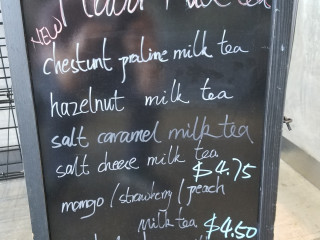 NEW
Milk Tea
chestunt praline milk tea
hazelnut milk tea
salt caramel milk tea
salt cheese milk tea
$4.75
mango / strawberry / peach
milk tea $4.50